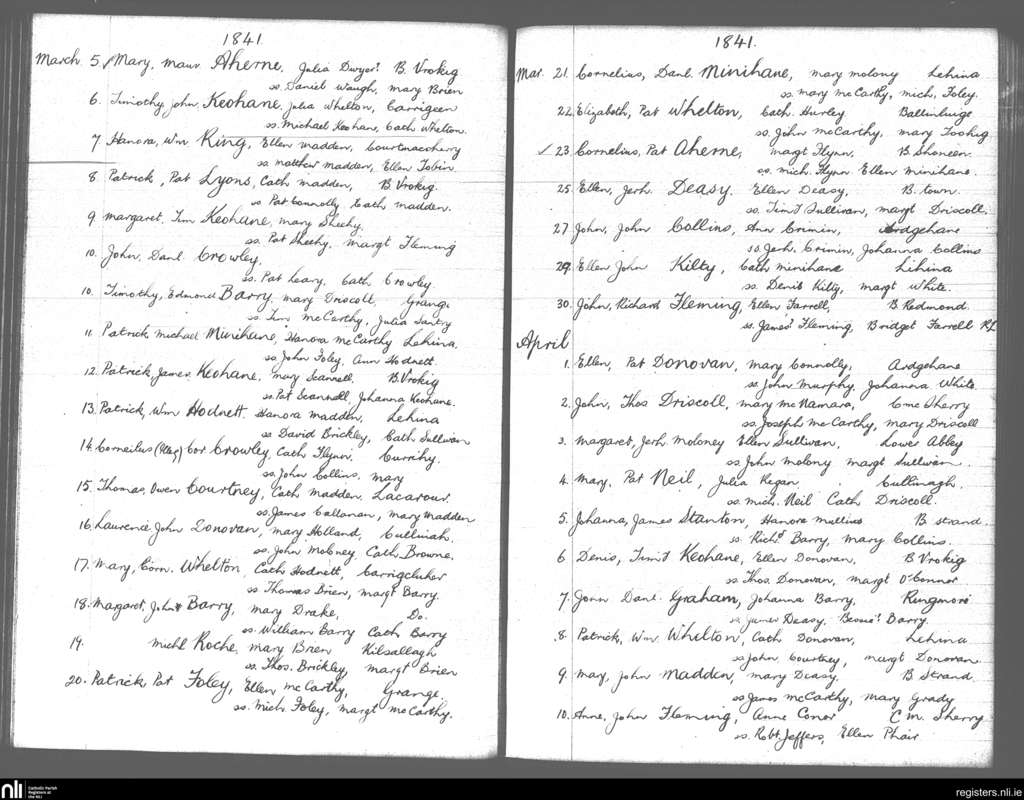 1841
March 5 Mary, Maur Aherne, Julia Dwyer B. Vrokig
ss. Daniel Waugh, Mary Brien
6. Timothy John Keohane, Julia Whelton, Carrigeen
ss. Michael Keohan, Cath Whelton.
7 Hanora, Wm Ring, Ellen Madden, Courtmacsherry
ss Matthew Madden, Ellen Tobin
8 Patrick, Pat Lyons, Cath Madden, B. Vrokig.
ss Pat Connolly Cath Madden.
9. Margaret. Tim Keohane, Mary Sheehy,
ss. Pat Sheehy, Margt Fleming
10. John, Danl Crowley,
ss. Pat Leary, Cath Crowley.
10. Timothy, Edmond Barry, Mary Driscoll, Grange
ss Tim McCarthy, Julia Santry
11. Patrick, Michael Minihane, Hanora McCarthy Lehina.
ss John Foley, Ann Hodnett.
12. Patrick, James Keohane, Mary Scannell. B. Vrokig
ss. Pat Scannell, Johanna Keohane.
13. Patrick, Wm Hodnett. Hanora Madden, Lehina
ss David Brickley, Cath. Sullivan
14. Cornelius Cor Crowley, Cath Flynn, Currihy.
ss. John Collins, Mary
15. Thomas, Owen Courtney, Cath Madden, Lacarour.
ss. James Callanan, Mary Madden
16. Laurence John Donovan, Mary Holland, Cullinah.
ss. John Moloney Cath Browne.
17. Mary, Corn. Whelton, Cath Hodnett, Carrigcluher
ss Thomas Brien, Margt Barry.
18. Margaret, John Barry, Mary Drake, Do.
ss. William Barry Cath Barry
19. Michl Roche, Mary Brien Kilsallagh
ss. Thos. Brickley, Margt Brien
20. Patrick, Pat Foley, Ellen McCarthy, Grange,
ss. Mich Foley, Margt McCarthy.
1841.
Mar. 21. Cornelius, Danl. Minihane, Mary Molony Lehina
ss. Mary McCarthy, Mich, Foley.
22. Elizabeth, Pat Whelton, Cath. Hurley Ballinluige
ss. John McCarthy, Mary Toohig
✓ 23. Cornelius, Pat Aherne, Margt Flynn, B. Shoneen.
ss. Mich. Flynn Ellen Minihane.
25. Ellen, Jerh. Deasy. Ellen Deasy, B. town.
ss. Timt Sullivan, Margt Driscoll.
27. John, John Collins, Ann Crimin, Ardgehane
ss Jerh. Crimin, Johanna Collins
29. Ellen John Kilty, Cath Minihane Lihina
ss. Denis Kilty, Margt White.
30. John, Richard Fleming, Ellen Farrell, B Redmond.
ss. James Fleming, Bridget Farrell
April
1. Ellen, Pat Donovan, Mary Connolly, Ardgehane
ss John Murphy, Johanna White.
2. John, Thos Driscoll, Mary McNamara, Cmc Sherry
ss. Joseph McCarthy, Mary Driscoll
3. Margaret, Jerh Moloney Ellen Sullivan, Lower Abbey
ss John Molony Margt Sullivan.
4. Mary, Pat Neil, Julia Regan. Cullinagh.
ss. Mich. Neil Cath Driscoll.
5. Johanna, James Stanton, Hanora Mullins B. Strand.
ss. Richd Barry, Mary Collins.
6 Denis, Timt Keohane, Ellen Donovan, B Vrokig
ss Thos. Donovan, Margt O'Connor
7. John Danl. Graham, Johanna Barry, Ringmore
ss James Deasy, Bessie Barry.
8. Patrick, Wm Whelton, Cath Donovan, Lehina
ss John Courtney, Margt Donovan
9. Mary, John Madden, Mary Deasy, B Strand.
ss James McCarthy, Mary Grady
10. Anne, John Fleming, Anne Conor C M. Sherry
ss. Robt. Jeffers, Ellen Phair
nli Catholic Parish Registers at the NLI
registers.nli.ie